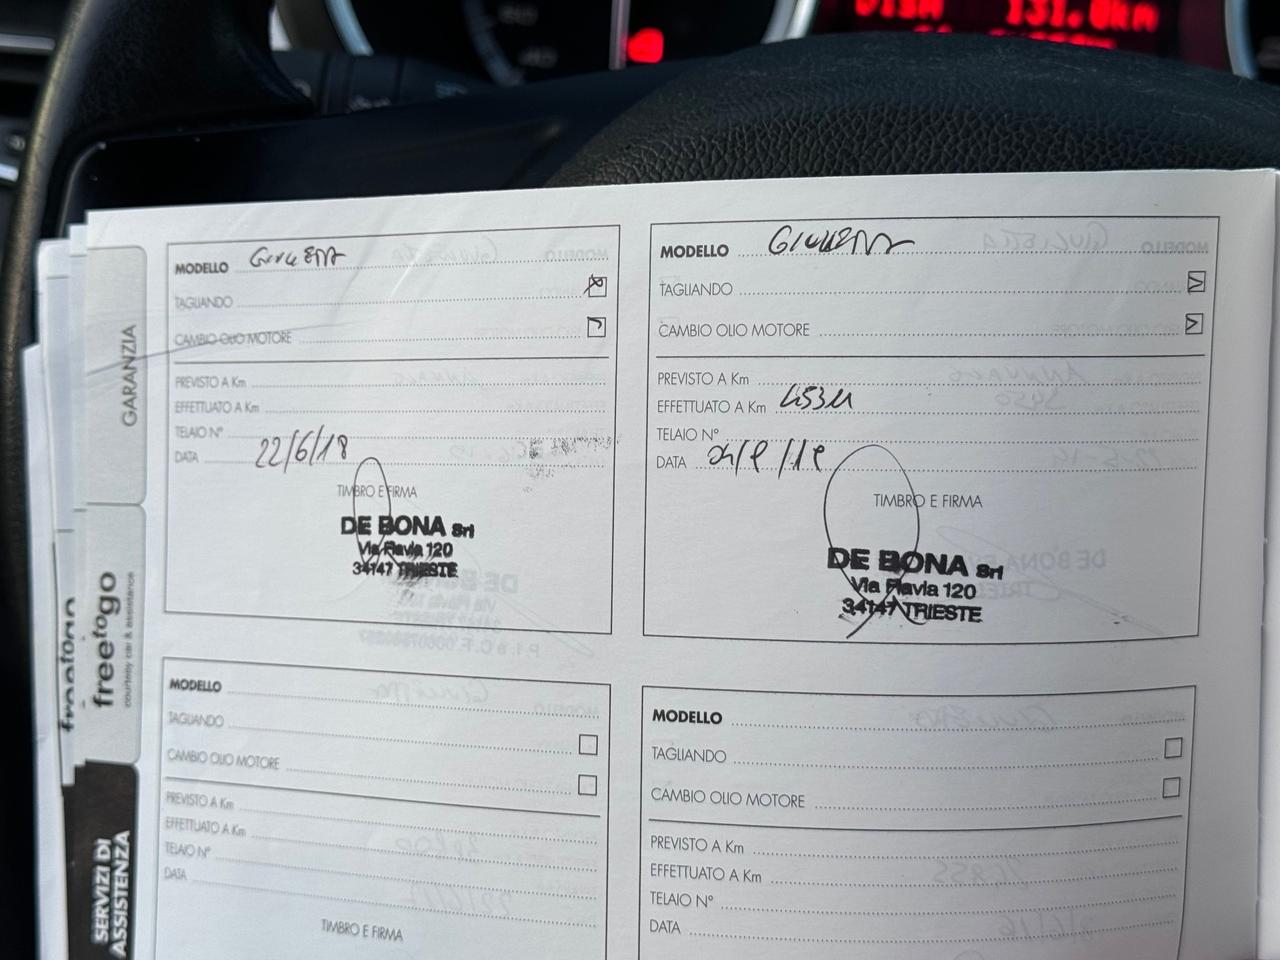 131.0km
GARANZIA
freetogo
courtesy car & assistance
SERVIZI DI
ASSISTENZA
MODELLO GIULIETTA
TAGLIANDO
CAMBIO OLIO MOTORE
PREVISTO A Km
EFFETTUATO A Km
TELAIO N°
DATA 22/6/18
TIMBRO E FIRMA
DE BONA Srl
Via Flavia 120
34147 TRIESTE
MODELLO GIULIETTA
TAGLIANDO
CAMBIO OLIO MOTORE
PREVISTO A Km
EFFETTUATO A Km
TELAIO N°
DATA
TIMBRO E FIRMA
DE BONA Srl
Via Flavia 120
34147 TRIESTE
MODELLO
TAGLIANDO
CAMBIO OLIO MOTORE
PREVISTO A Km
EFFETTUATO A Km
TELAIO N°
DATA
TIMBRO E FIRMA
MODELLO
TAGLIANDO
CAMBIO OLIO MOTORE
PREVISTO A Km
EFFETTUATO A Km
TELAIO N°
DATA